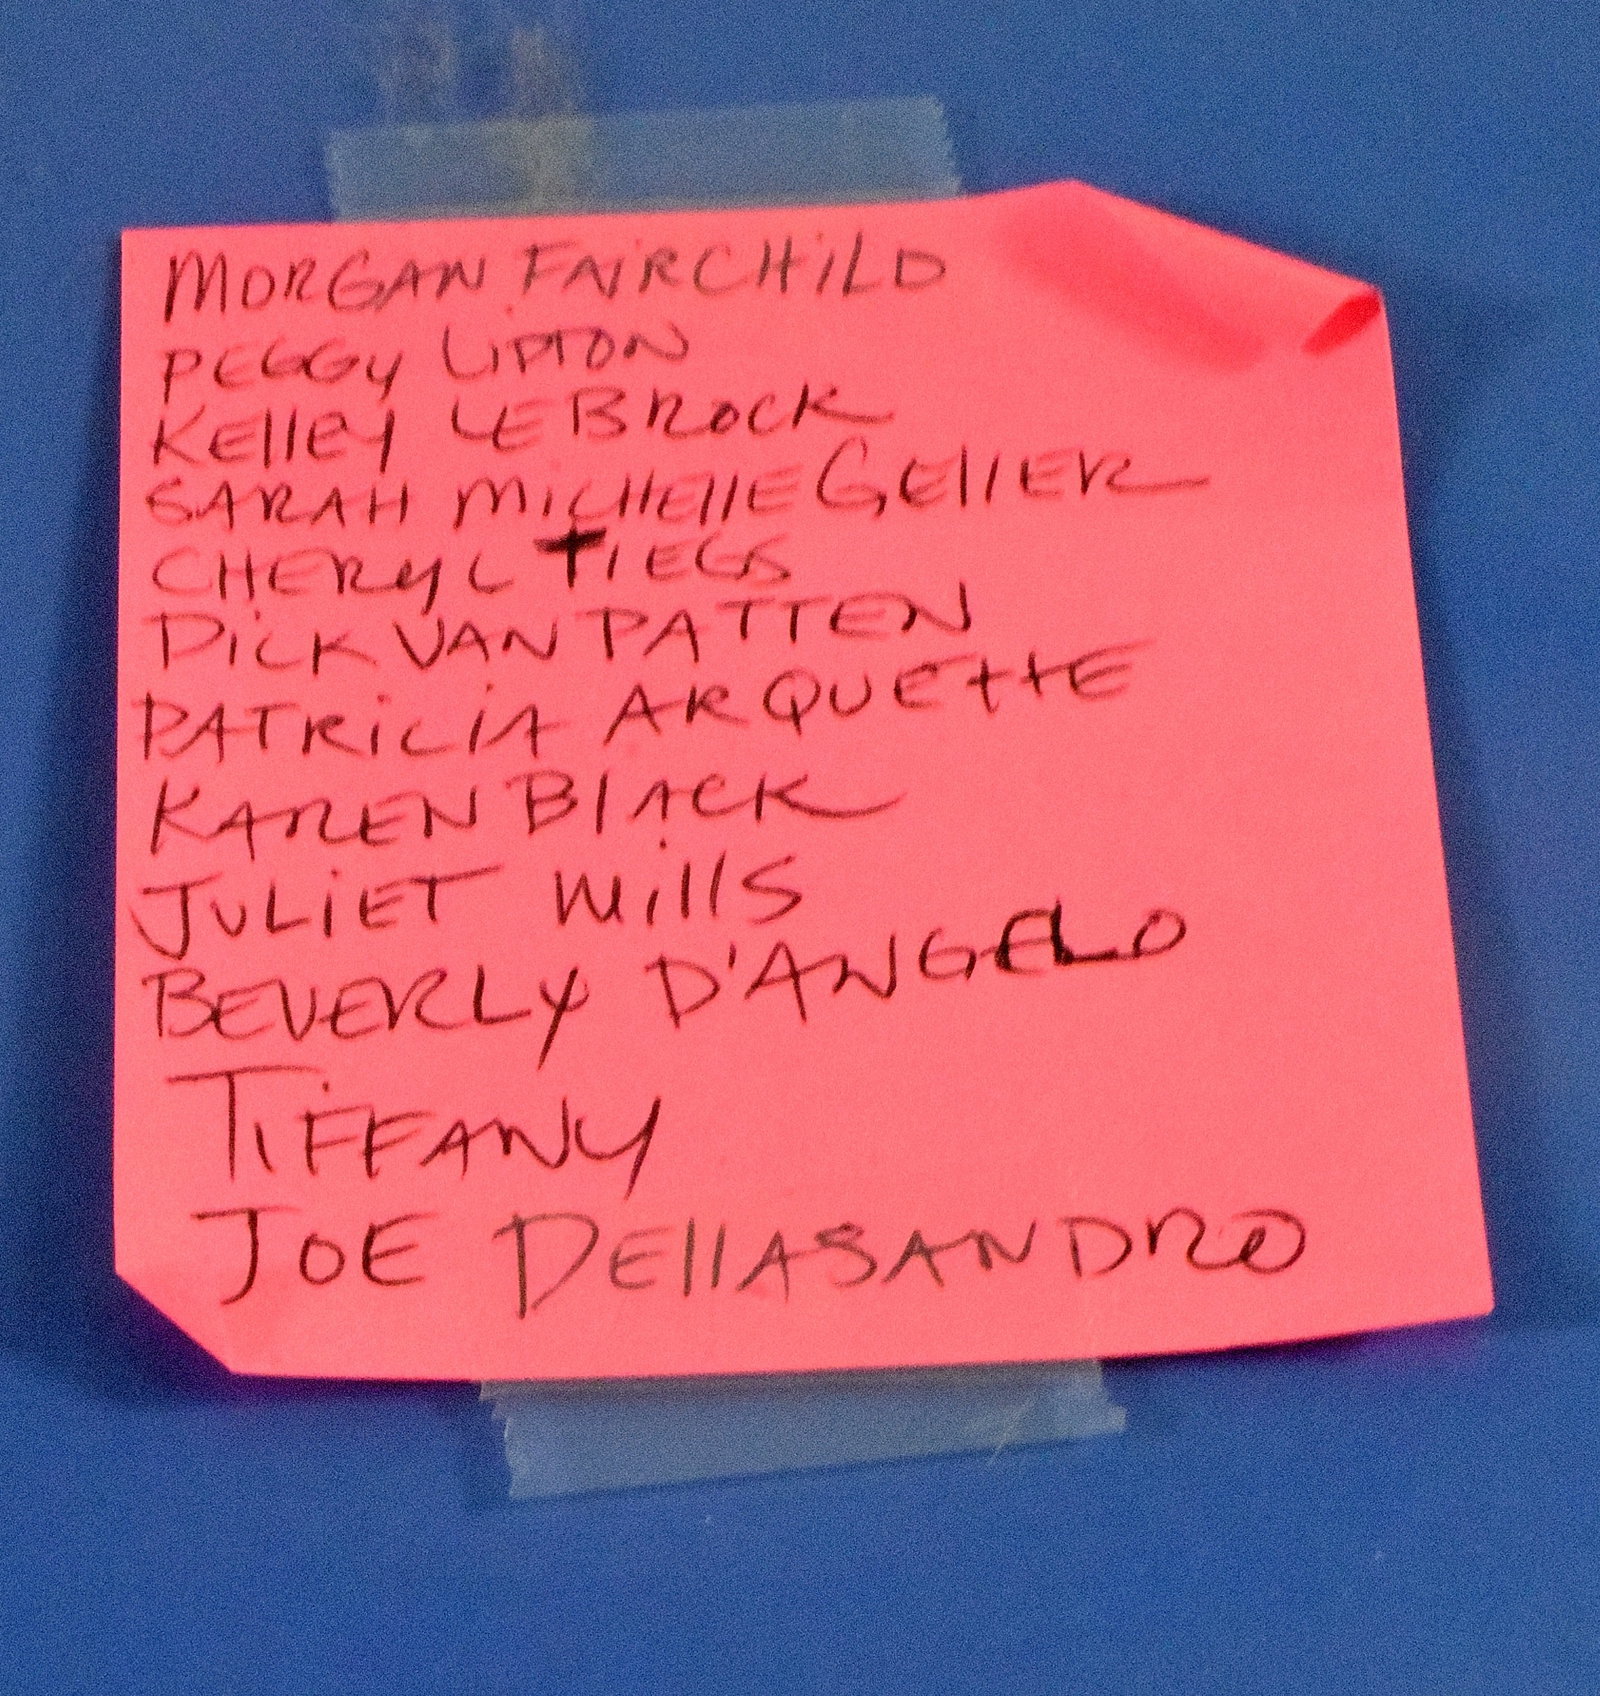 MORGAN FAIRCHILD
PEGGY LIPTON
KELLEY LEBROCK
SARAH MICHELLE GELLER
CHERYL TIEGS
DICK VAN PATTEN
PATRICIA ARQUETTE
KAREN BLACK
JULIET MILLS
BEVERLY D'ANGELO
TIFFANY
JOE DELLASANDRO